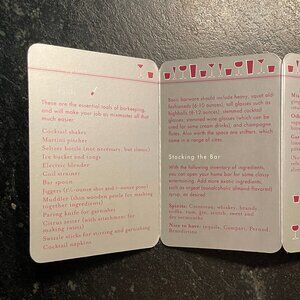 These are the essential tools of bar-keeping,
and will make your job as mixmaster all that
much easier:
Cocktail shaker
Martini pitcher
Seltzer bottle (not necessary, but classy)
Ice bucket and tongs
Electric blender
Coil strainer
Bar spoon
Jiggers
Muddler (thin wooden pestle for mashing
together ingredients)
Paring knife for garnishes
Citrus zester (with attachment for
making twists)
Swizzle sticks for stirring and garnishing
Cocktail napkins
Basic barware should include heavy, squat old-
fashioneds (6-10 ounces), tall glasses such as
highballs (8-12 ounces), stemmed cocktail
glasses, stemmed wine glasses (which can be
used for some cream drinks), and champagne
flutes. Also worth the space are snifters, which
come in a range of sizes.
Stocking the Bar
With the following inventory of ingredients,
you can open your home bar for some classy
entertaining. Add more exotic ingredients,
such as orgeat (nonalcoholic almond-flavored
syrup), as desired.
Spirits: whiskey, brandy,
vodka, rum, gin, scotch, sweet and
dry vermouths
Nice to have: tequila, Campari, Pernod,
Bénédictine